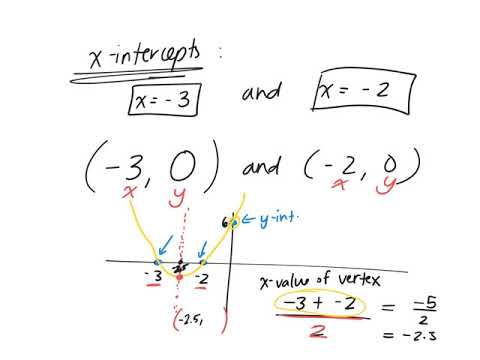 x-intercepts :
x = -3 and x = -2
(-3, 0) and (-2, 0)
x y x y
6 ← y-int.
-3 -2.5 -2
x-value of vertex
-3 + -2 = -5
2 2
(-2.5, ) = -2.5